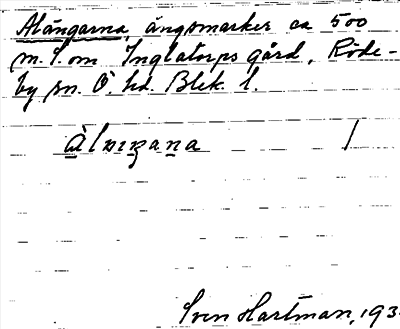 Alängarna, ängsmarker ca 500
m. S. om Inglatorps gård, Röde-
by sn. Ö. hd. Blek. l.
Sven Hartman, 193